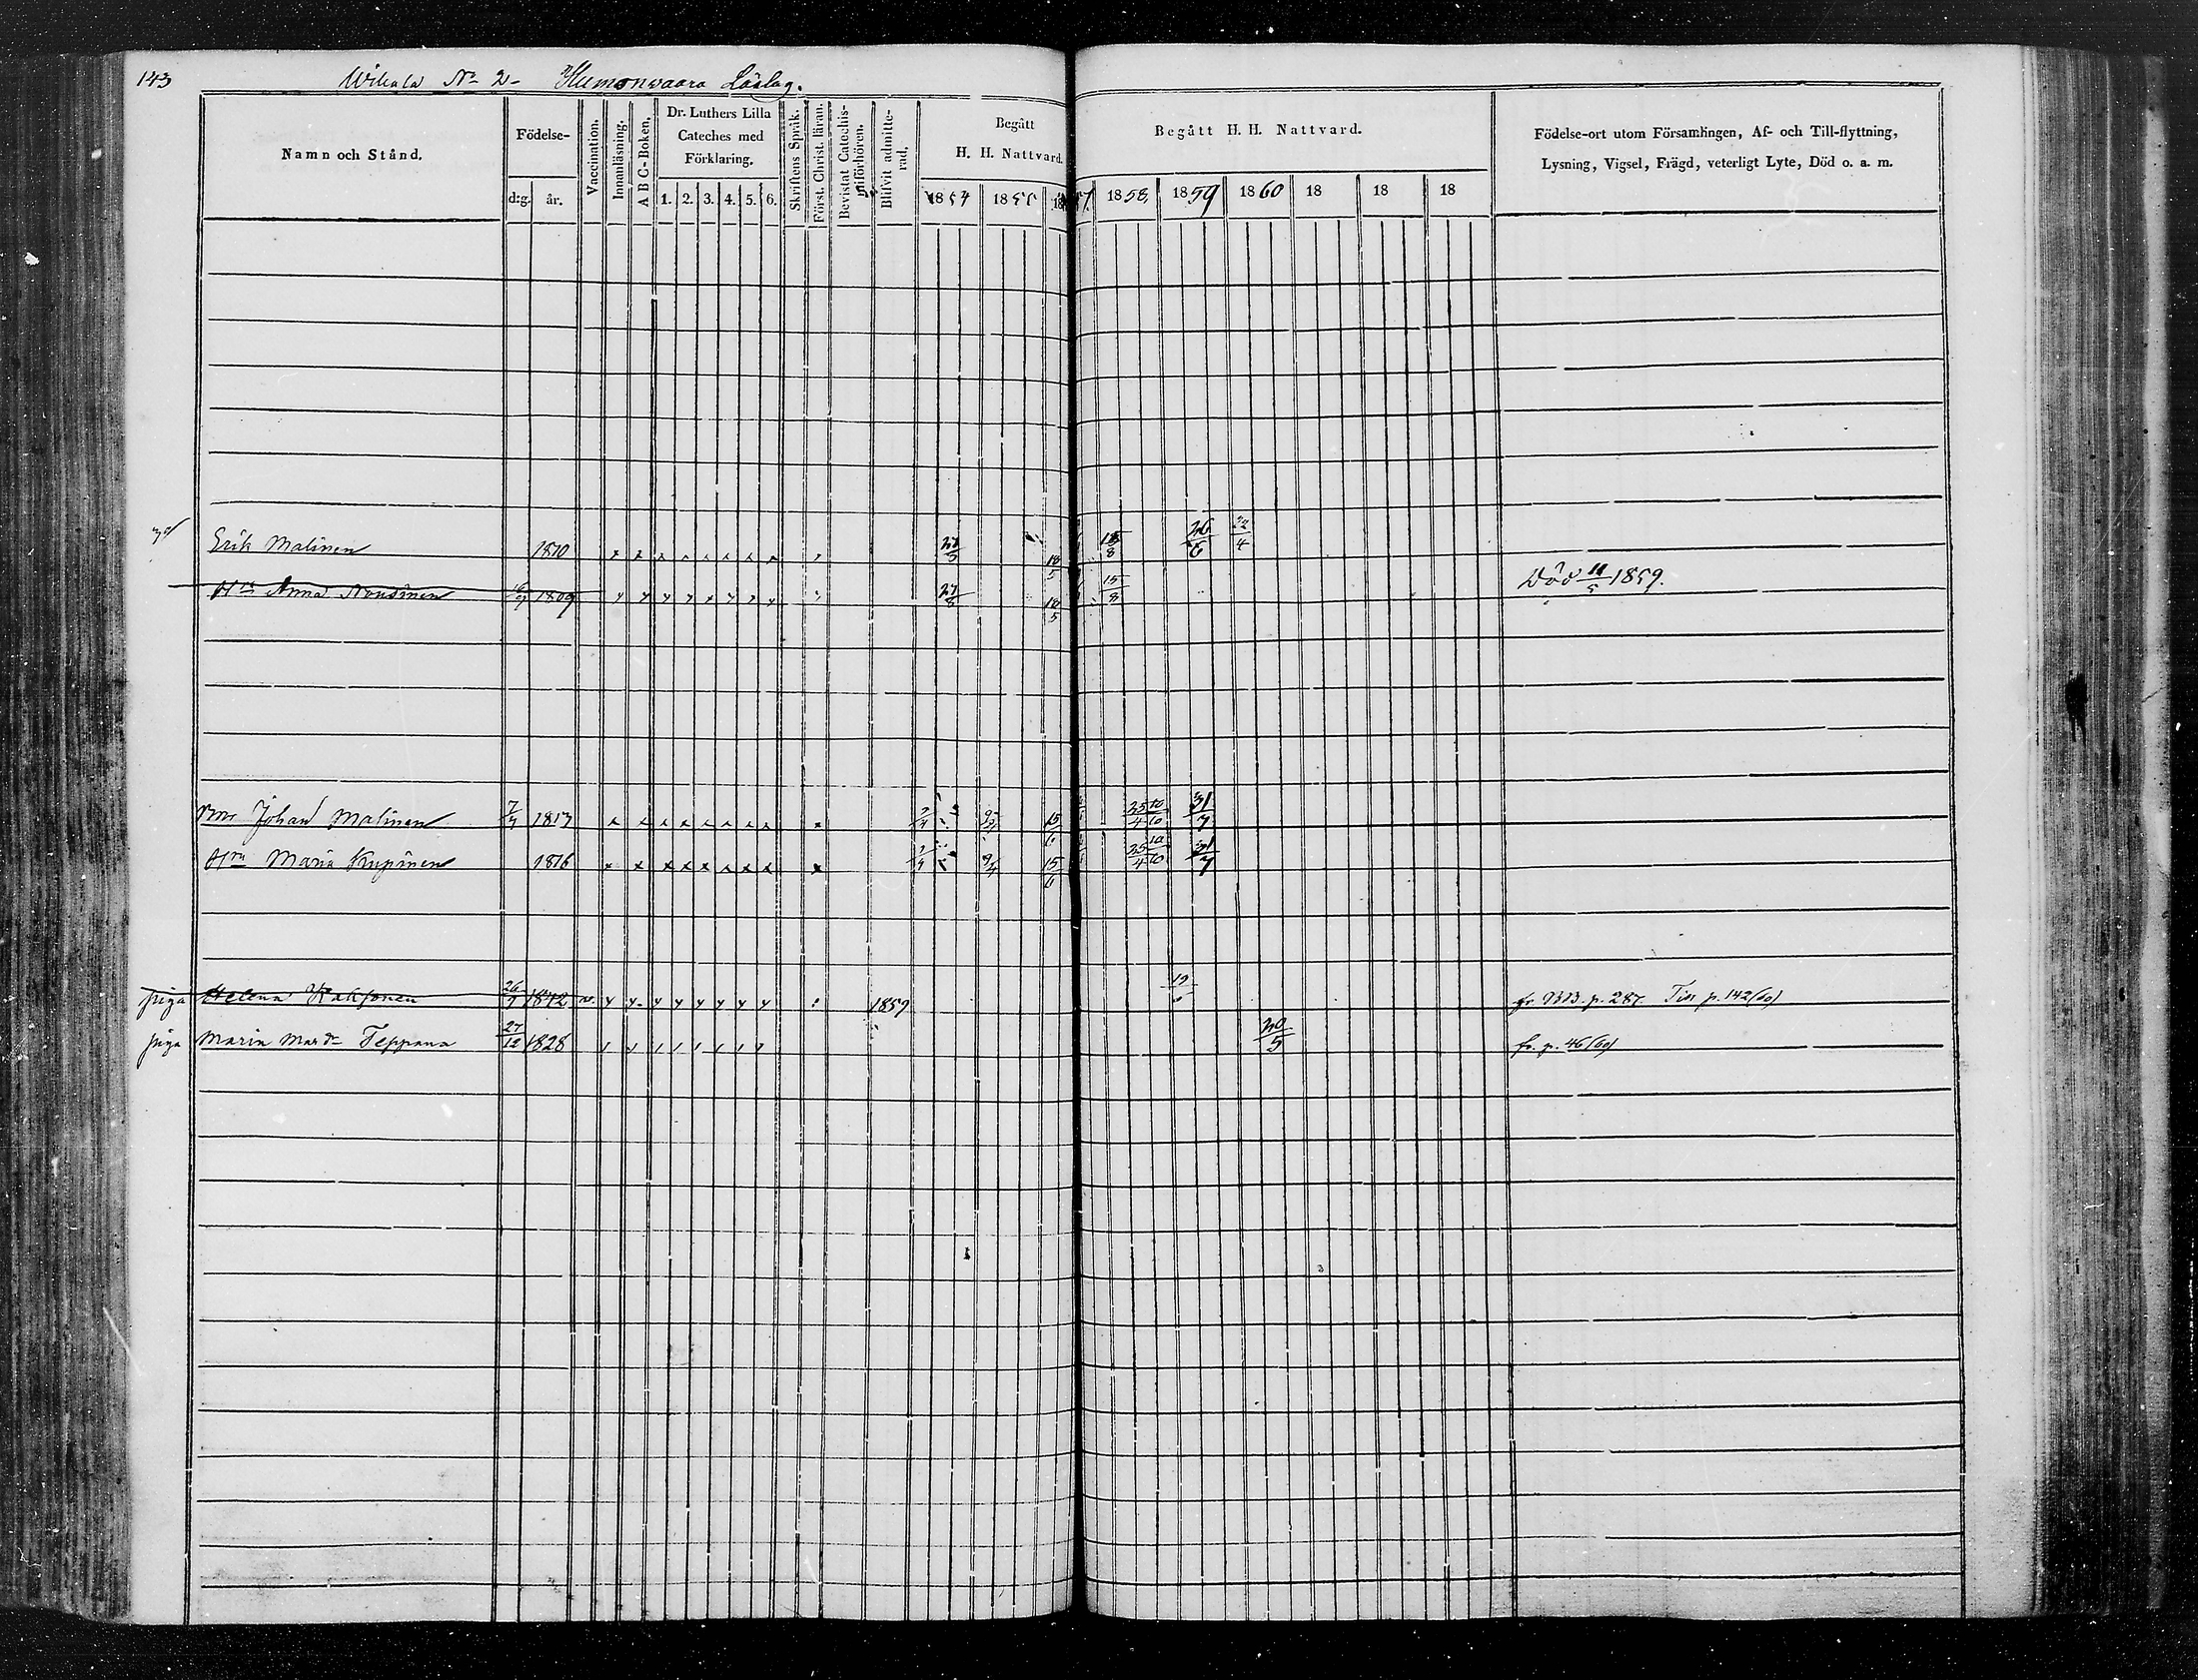 143 Wikala No 2 Humonvaara Löslag.
Namn och Stånd.
Födelse-
d:g. år.
Vaccination.
Innanläsning.
A B C-Boken.
Dr. Luthers Lilla
Cateches med
Förklaring.
1. 2. 3. 4. 5. 6.
Skriftens Språk.
Först. Christ. läran.
Bevistat Catechis-
miförhören.
Blifvit admitte-
rad.
Begått
H. H. Nattvard.
1854 1855 18
Begått H. H. Nattvard.
7. 1858, 1859 1860 18 18 18
Födelse-ort utom Församlingen, Af- och Till-flyttning,
Lysning, Vigsel, Frägd, veterligt Lyte, Död o. a. m.
Erik Malinen 1810 27/5 18/5 15/8 26/6 22/4
Anna 1809 27/8 18/5 15/8 Död 11/5 1859.
Johan Malinen 7/4 1813 15/6 25/4 10/10 31/7
Hru Maria Kupinen 1816 15/6 25/4 10/10 31/7
piga Helena 26/9 1842 1859 19 fr. p. 287. Till p. 142 (60)
piga Maria Mards Teppana 27/12 1828 20/5 fr. p. 46 (60)